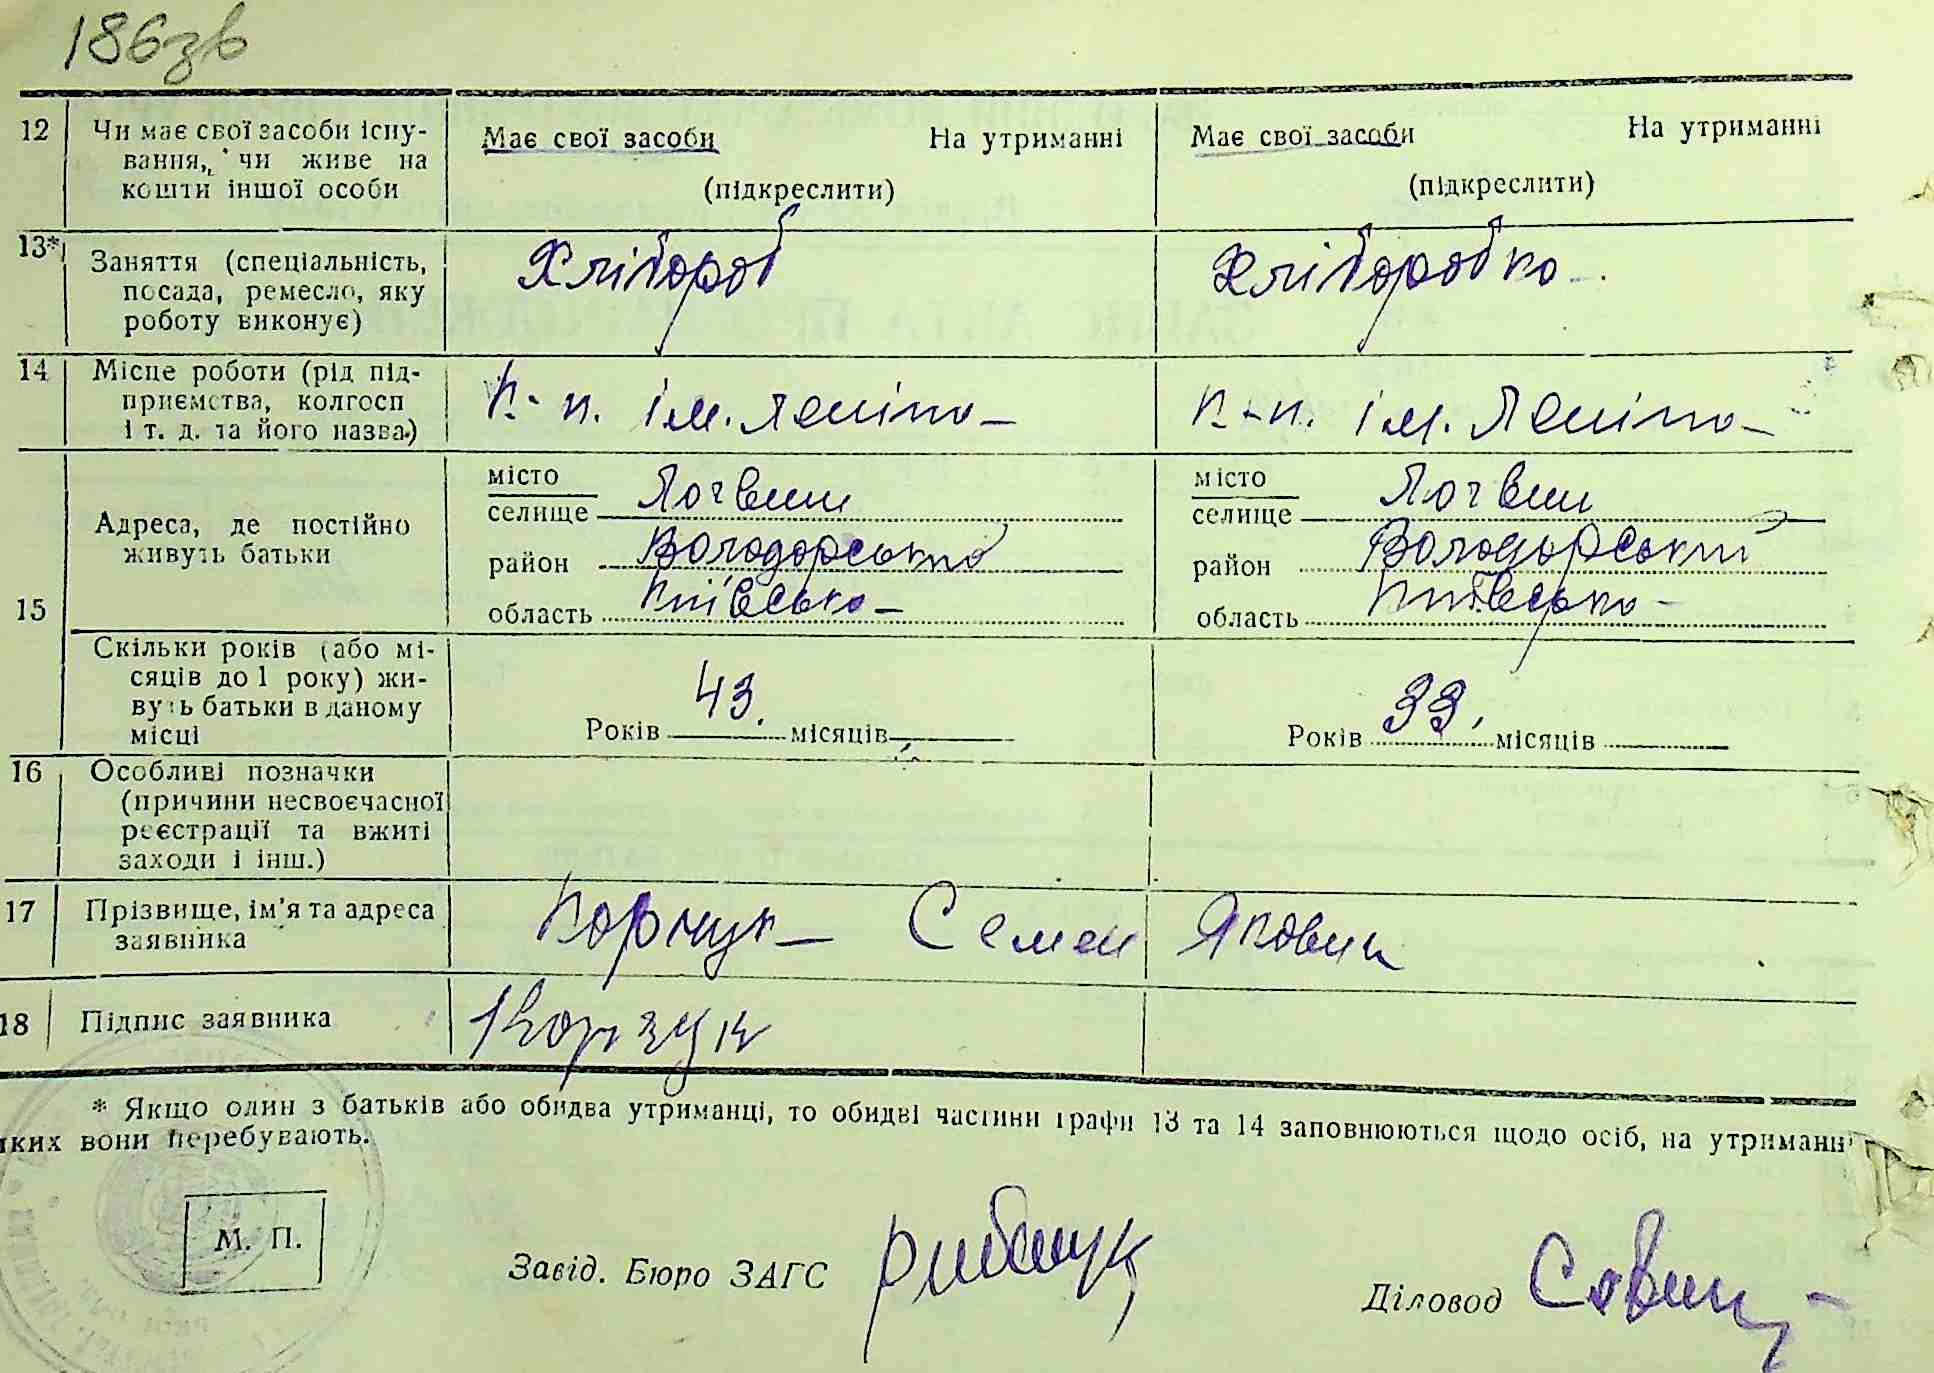 186зв
12 Чи має свої засоби існу- Має свої засоби На утриманні Має свої засоби На утриманні
вання, чи живе на
кошти іншої особи (підкреслити) (підкреслити)
13* Заняття (спеціальність, Хлібороб Хліборобка
посада, ремесло, яку
роботу виконує)
14 Місце роботи (рід під- к-п. ім. Леніна к-п. ім. Леніна
приємства, колгосп
і т. д. та його назва)
місто місто
селище Логвин селище Логвин
15 Адреса, де постійно
живуть батьки район Володарський район Володарський
область Київська область Київська
Скільки років (або мі-
сяців до 1 року) жи-
вуть батьки в даному
місці Років 43. місяців Років 33. місяців
16 Особливі позначки
(причини несвоєчасної
реєстрації та вжиті
заходи і інш.)
17 Прізвище, ім'я та адреса Корчук Семен Якович
заявника
18 Підпис заявника Корчук
* Якщо один з батьків або обидва утриманці, то обидві частини графи 13 та 14 заповнюються щодо осіб, на утриманні
яких вони перебувають.
М. П.
Завід. Бюро ЗАГС Рибащук
Діловод